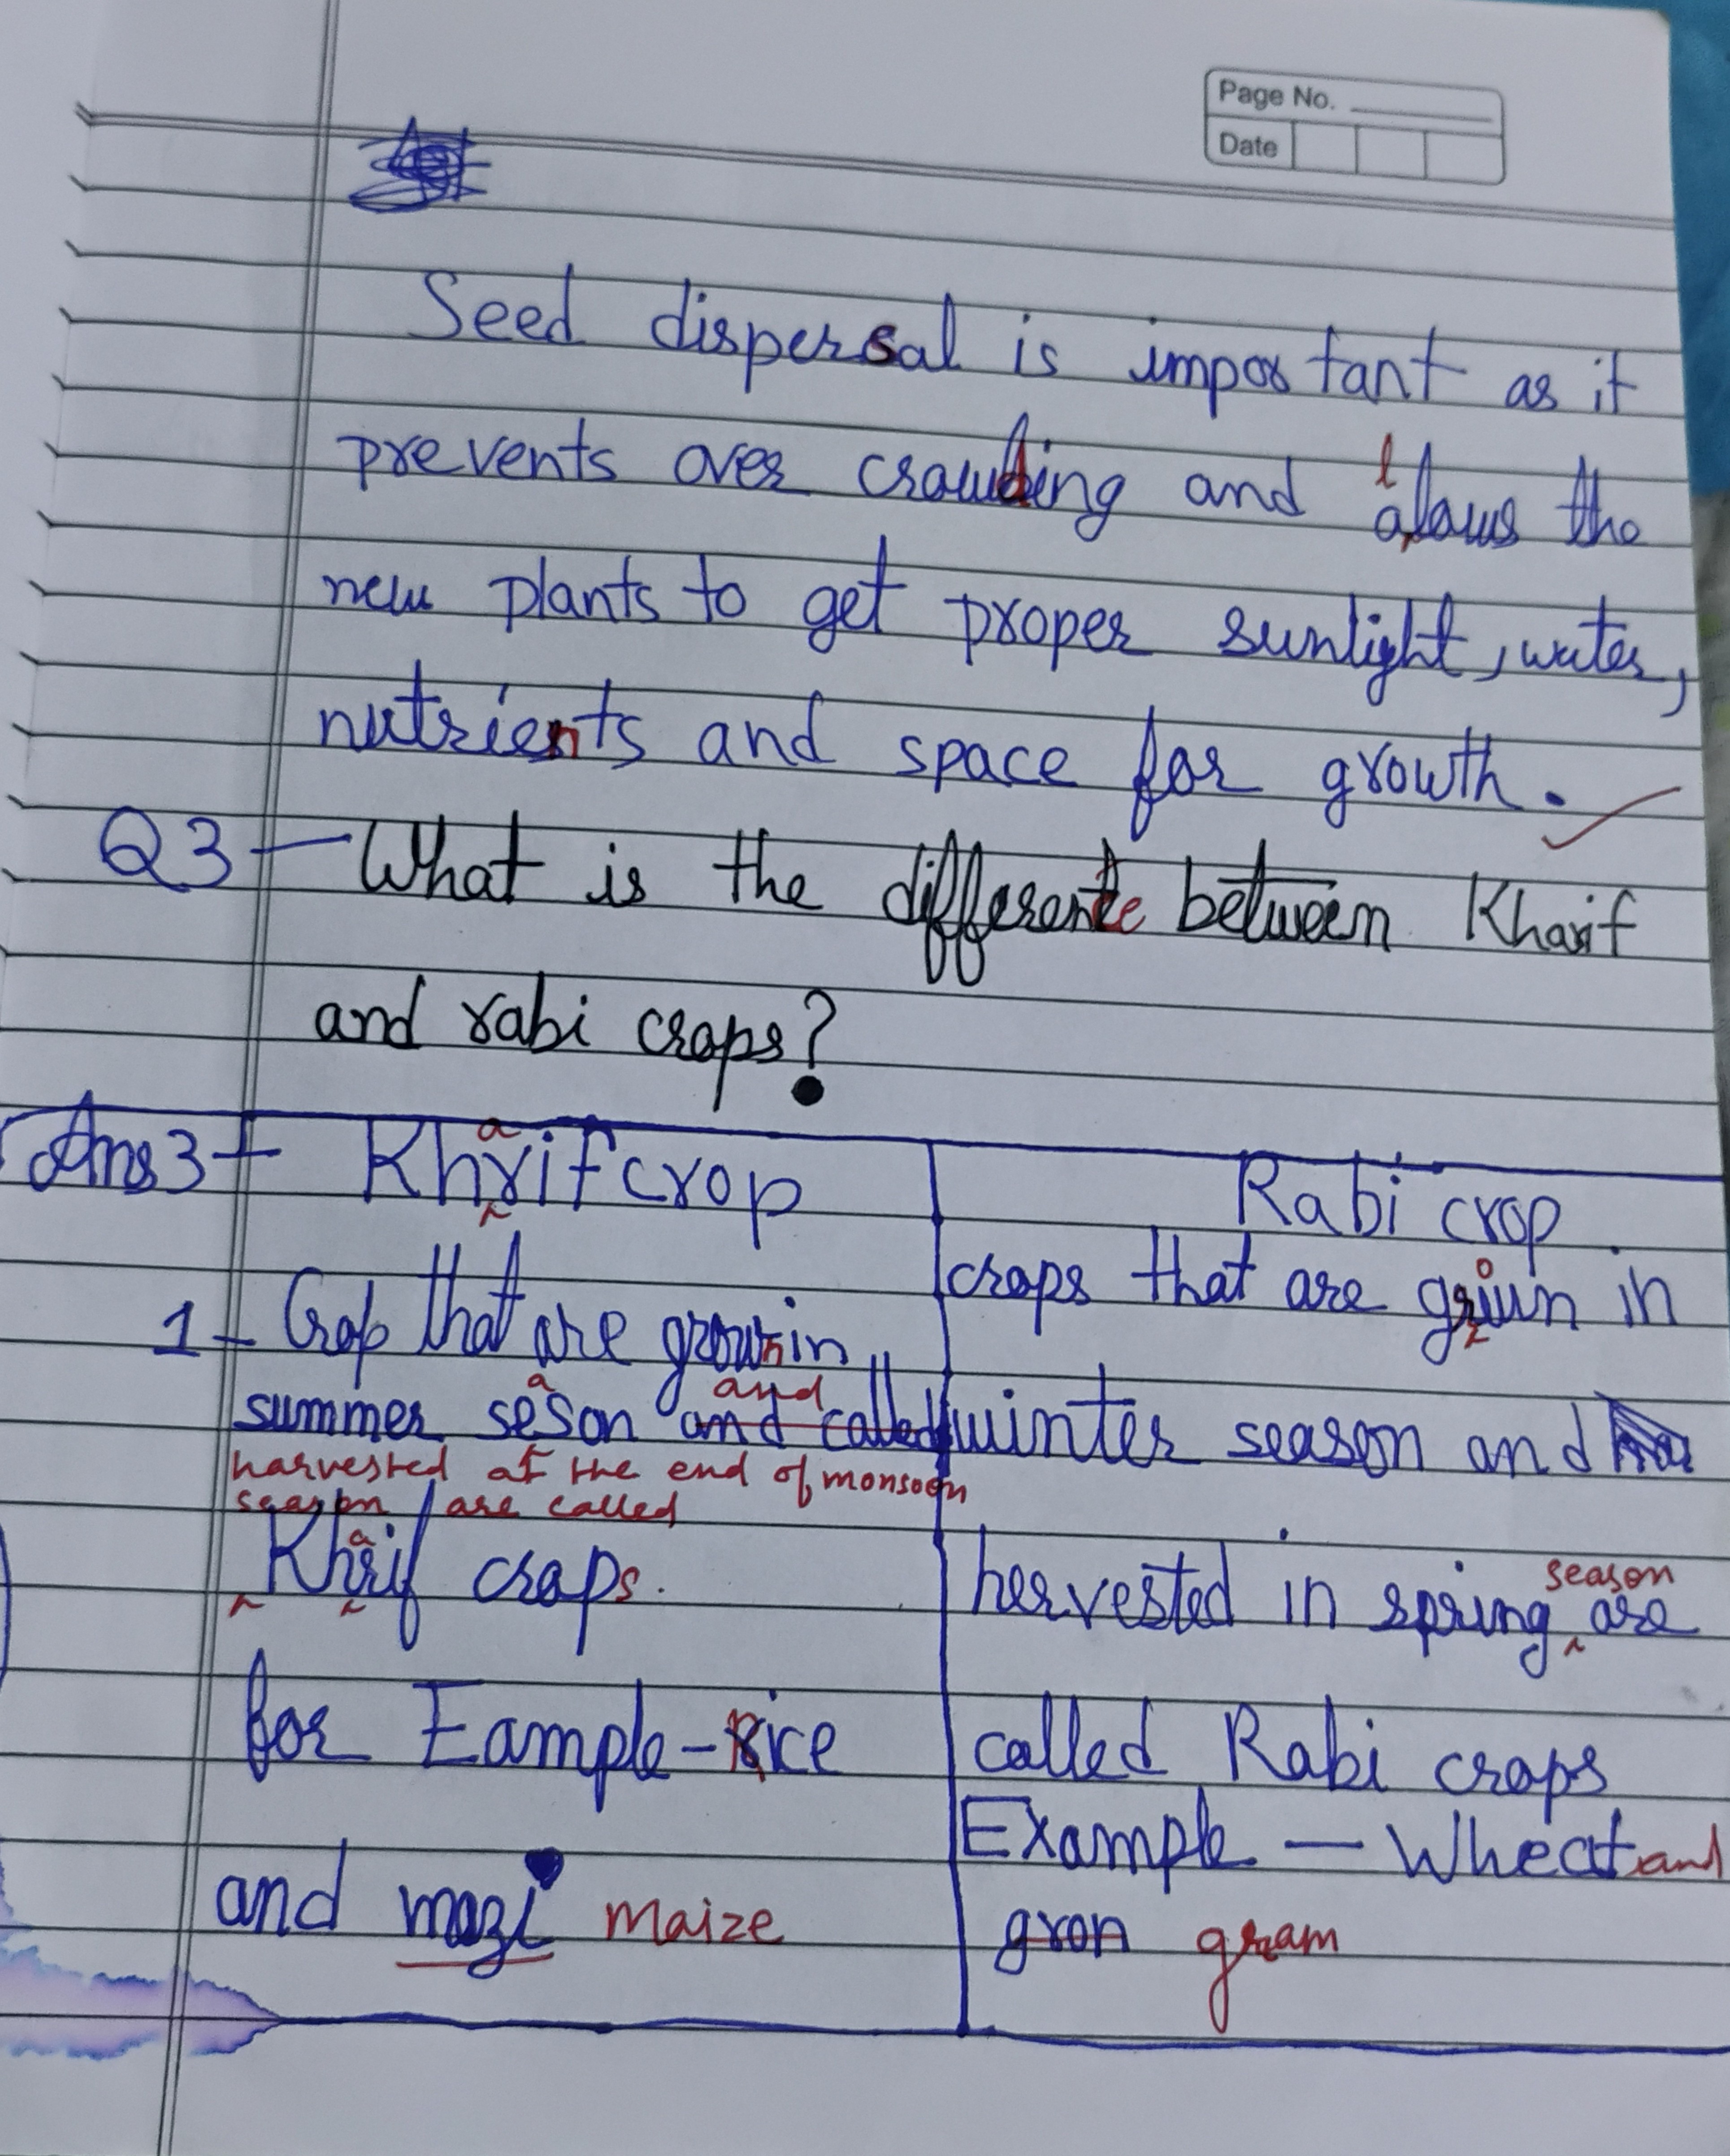 Page No.
Date
Seed dispersal is important as it
prevents over crowding and allows the
new plants to get proper sunlight, water,
nutrients and space for growth.
Q3 - What is the difference between Kharif
and rabi crops?
Ans 3 - Kharif crop
Rabi crop
1 - Crop that are grown in
summer season and called
and
harvested at the end of monsoon
season / are called
Kharif crops.
for Eample - Rice
and mazi maize
crops that are grown in
winter season and
hervested in spring season are
called Rabi crops
Example - Wheat and
gron gram